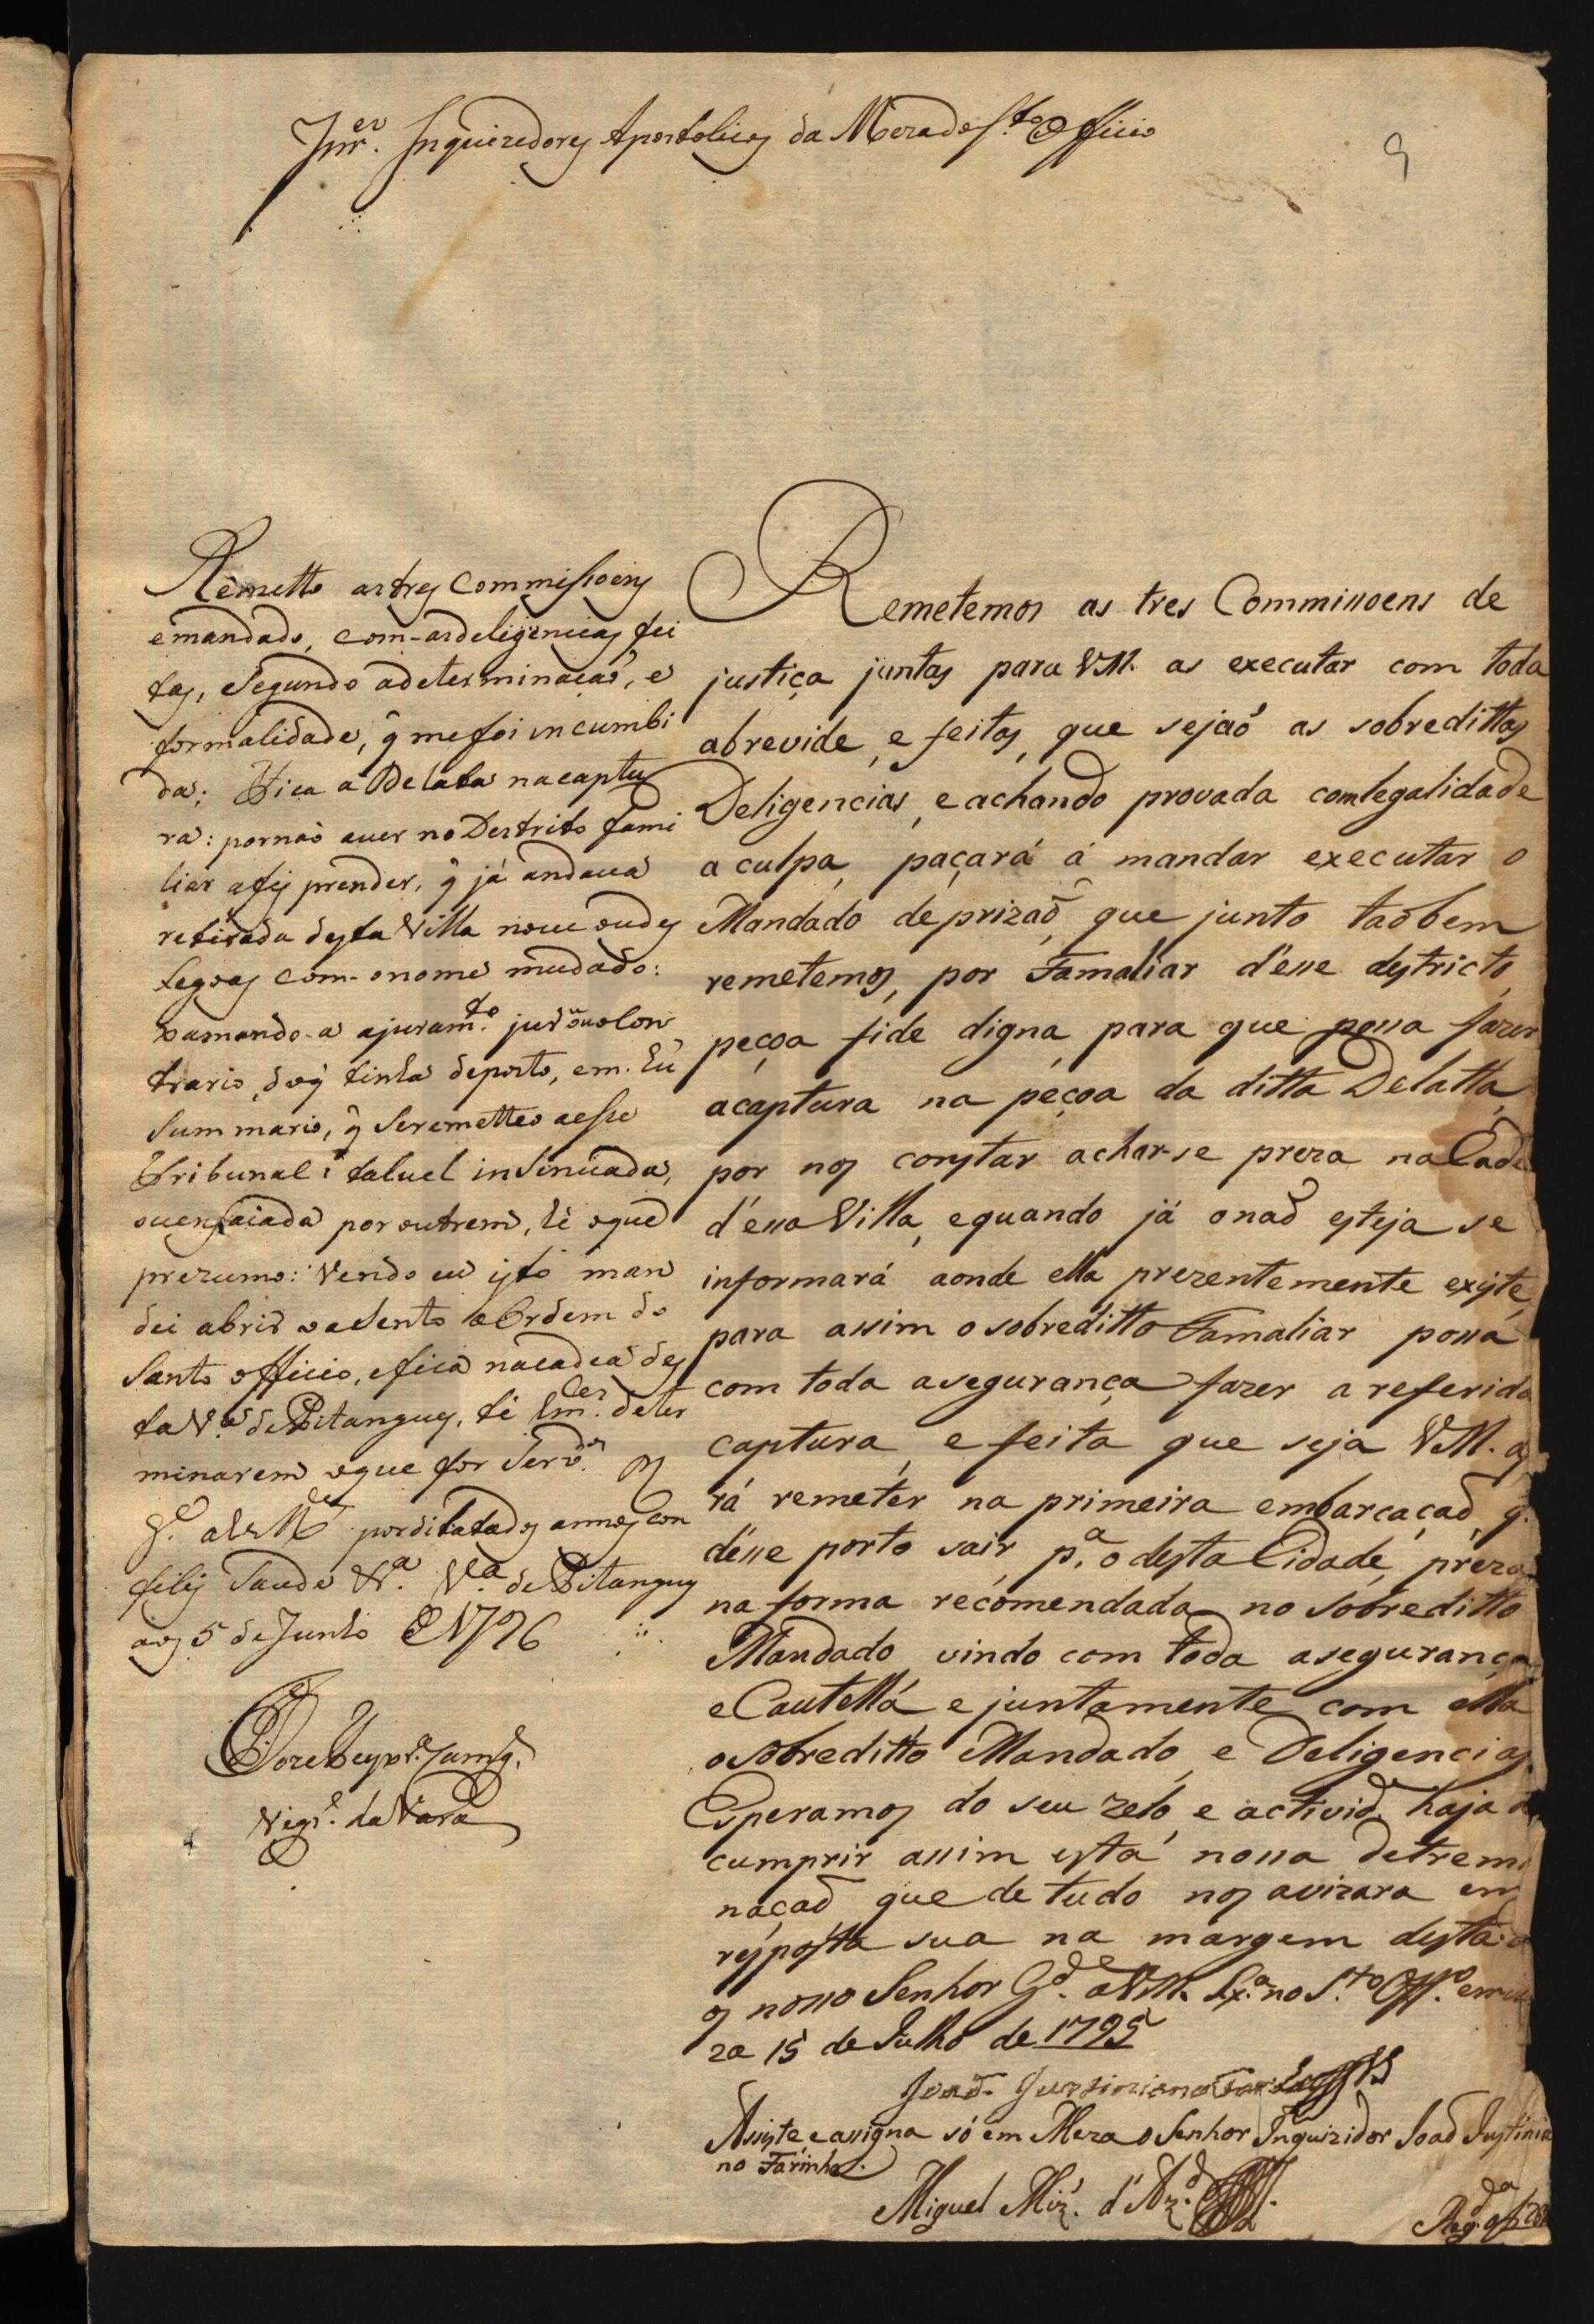 Inq.es Inquizedores Apostolicos da Meza do S.to Officio
9
Remetto as tres Commissoens
e mandado, com as deligencias fei
tas, Segundo a determinaçaõ, e
formalidade, q̃ me foi incumbi
da; Fica a Delata na captu
ra: por naõ aver no Destrito fami
liar a fis prender, q̃ já andava
retirada desta Villa nove ou des
legoas com o nome mudado:
xamando-a a juram.to jurou o con
trario, do q̃ tinha deposto, em hũ
Summario, q̃ Se remetteo a esse
Tribunal: talvel insinuada,
ou ensaiada por outrem, hé o que
prezumo: Vendo eu isto man
dei abrir o asento a Ordem do
Santo Officio, e fica na cadea des
ta V.a de Pitanguy, té Sm.ces deter
minarem o que for Serv.os
G.e a Vs M.ces por dilatados annos con
felis Saude V.a V.a de Pitanguy
aos 5 de Junho de 1796
Vigr.o da Vara
Remetemos as tres Commissoens de
justiça juntas para VM. as executar com toda
abrevide, e feitas, que sejaõ as sobredittas
Deligencias, e achando provada com legalidade
a culpa, paçará á mandar executar o
Mandado de prizaõ, que junto taõbem
remetemos, por Famaliar d'esse destricto,
peçoa fide digna, para que possa fazer
a captura na peçoa da ditta Delatta,
por nos constar achar-se preza na Cade
d'essa Villa, e quando já o naõ esteja se
informará aonde ella prezentemente existe,
para assim o sobreditto Famaliar possa
com toda a segurança fazer a referida
captura, e feita que seja VM. a
rá remeter na primeira embarcaçaõ, q.
désse porto sair, p.a o desta Cidade, preza
na forma recomendada no sobreditto
Mandado, vindo com toda a segurança
e Cautella, e juntamente com ella
o sobreditto Mandado, e Deligencias.
Esperamos do seu zelo, e activid.e haja d
cumprir assim está nossa detremi
naçaõ que de tudo nos avizara em
resposta sua na margem desta
nosso Senhor G.de a VM. Lx.a no S.to Off.o em
za 15 de Julho de 1795
Joaõ Justiniano
Assiste e assigna só em Meza o Senhor Inquizidor Joaõ Justinia
no Farinha.
Miguel Miz. d'Az.do
Reg.da